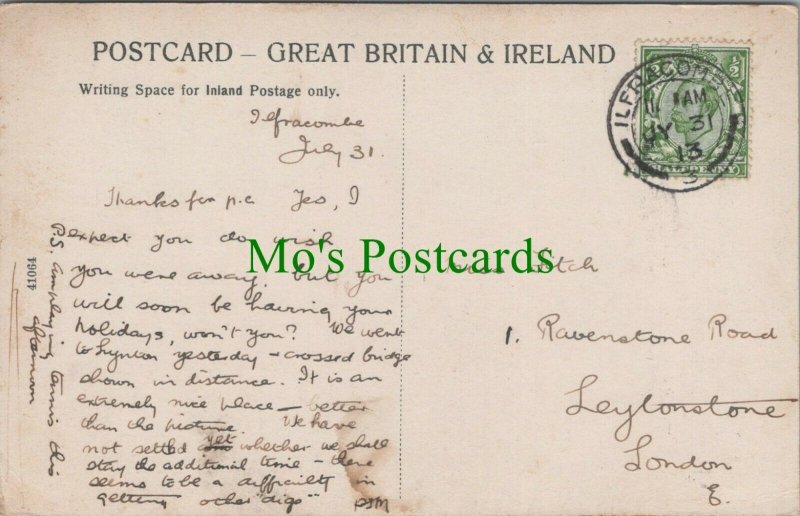 POSTCARD – GREAT BRITAIN & IRELAND
Writing Space for Inland Postage only.
Ilfracombe
July 31.
Thanks for p.c Yes, I
expect you do wish
you were away. but you
will soon be having your
holidays, won't you? We went
to Lynton yesterday – crossed bridge
shown in distance. It is an
extremely nice place – better
than the picture. We have
not settled yet whether we shall
stay the additional time – there
seems to be a difficulty in
getting other "digs"
P.S. Am playing tennis this
afternoon
41064
Mo's Postcards
1. Ravenstone Road
Leytonstone
London
E.
ILFRACOMBE
11 AM
JY 31
13
3
½
HALFPENNY